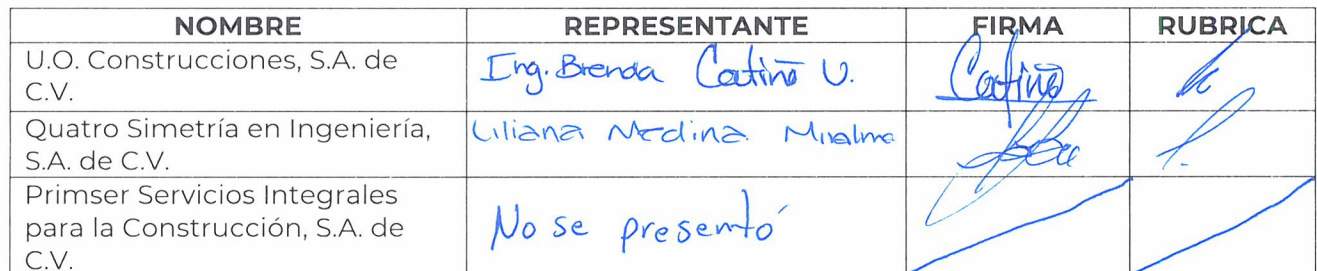 NOMBRE REPRESENTANTE FIRMA RUBRICA
U.O. Construcciones, S.A. de
C.V.
Ing. Brenda Coutiño U. Coutiño
Quatro Simetría en Ingeniería,
S.A. de C.V.
Liliana Medina
Primser Servicios Integrales
para la Construcción, S.A. de
C.V.
No se presentó